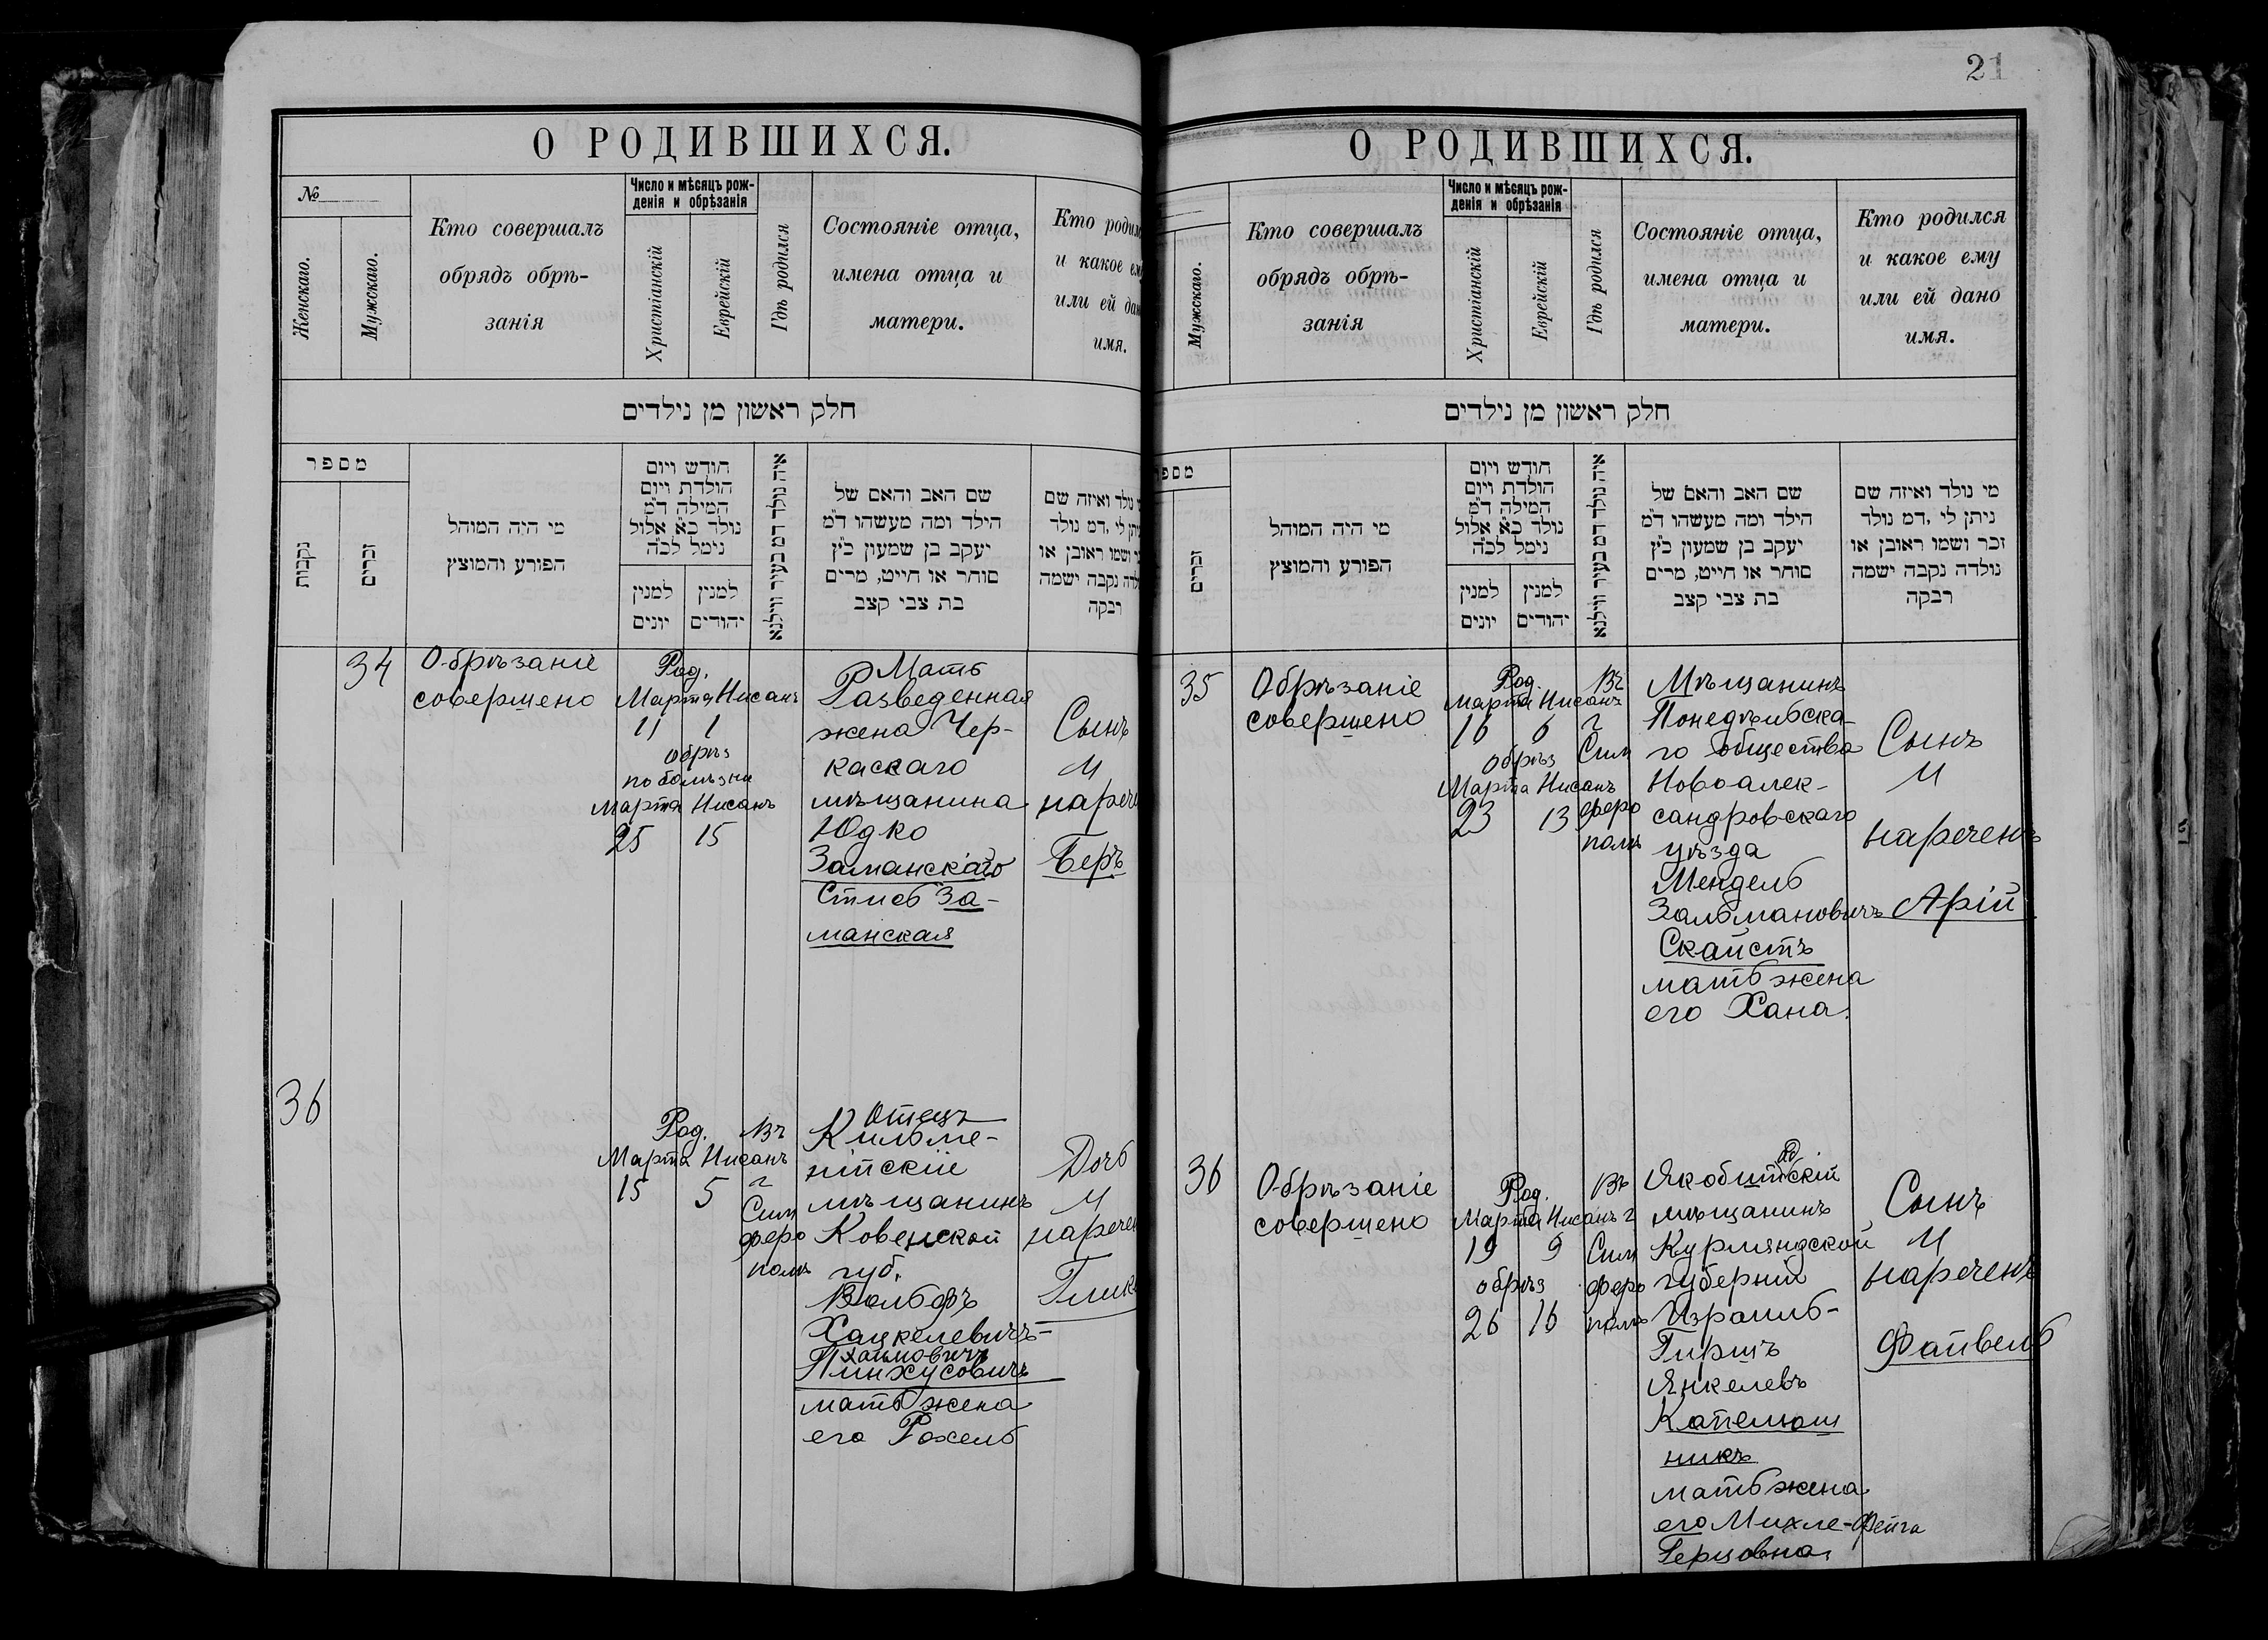 21
О РОДИВШИХСЯ.
№
Женскаго.
Мужскаго.
Кто совершалъ
обрядъ обрѣ-
занія
Число и мѣсяцъ рож-
денія и обрѣзанія
Христіанскій
Еврейскій
Гдѣ родился
Состояніе отца,
имена отца и
матери.
Кто родил
и какое ем
или ей дан
имя.
חלק ראשון מן נילדים
מספר
נקבות
זכרים
מי היה המוהל
הפורע והמוצץ
חודש ויום
הולדת ויום
המילה ד״מ
נולד כ״א אלול
נימל לכ״ה
למנין
יונים
למנין
יהודים
איה נולד ד״מ בעיר ווילנא
שם האב והאם של
הילד ומה מעשהו ד״מ
יעקב בן שמעון כ״ץ
סוחר או חייט, מרים
בת צבי קצב
נולד ואיזה שם
יתן לי, ד״מ נולד
ושמו ראובן או
לדה נקבה ישמה
רבקה
34
Обрѣзаніе
совершено
Род.
Марта Нисанъ
11 1
обрѣз
по болѣзни
Марта Нисанъ
25 15
Мать
Разведенная
жена Чер-
каскаго
мѣщанина
Юдко
Заманскаго
Стисъ За-
манская
Сынъ
И
нарече
Беръ
36
Род.
Марта Нисанъ
15 5
Въ
г
Сим
феро
полѣ
Отецъ
Кильме-
нітскій
мѣщанинъ
Ковенской
губ.
Вольфъ
Хацкелевичъ-
Хаимовичъ
Пинхусовичъ
мать жена
его Рохель
Дочь
И
наречен
Глик
О РОДИВШИХСЯ.
Мужскаго.
Кто совершалъ
обрядъ обрѣ-
занія
Число и мѣсяцъ рож-
денія и обрѣзанія
Христіанскій
Еврейскій
Гдѣ родился
Состояніе отца,
имена отца и
матери.
Кто родился
и какое ему
или ей дано
имя.
חלק ראשון מן נילדים
מספ
זכרים
מי היה המוהל
הפורע והמוצץ
חודש ויום
הולדת ויום
המילה ד״מ
נולד כ״א אלול
נימל לכ״ה
למנין
יונים
למנין
יהודים
איה נולד ד״מ בעיר ווילנא
שם האב והאם של
הילד ומה מעשהו ד״מ
יעקב בן שמעון כ״ץ
סוחר או חייט, מרים
בת צבי קצב
מי נולד ואיזה שם
ניתן לי, ד״מ נולד
זכר ושמו ראובן או
נולדה נקבה ישמה
רבקה
35
Обрѣзаніе
совершено
Род.
Марта Нисанъ
16 6
обрѣз
Марта Нисанъ
23 13
Въ
г
Сим
феро
полѣ
Мѣщанинъ
Понедѣльска-
го общества
Новоалек-
сандровскаго
уѣзда
Мендель
Залмановичъ
Скайстъ
мать жена
его Хана.
Сынъ
И
нареченъ
Арій
36
Обрѣзаніе
совершено
Род.
Марта Нисанъ
19 9
обрѣз
26 16
Въ
г
Сим
феро
полѣ
мѣщанинъ
Курляндской
губерніи
Израиль-
Гиршъ
Янкелевъ
Капелюш
никъ
мать жена
его Михле-Фейга
Герцовна.
Сынъ
И
нареченъ
Файвель